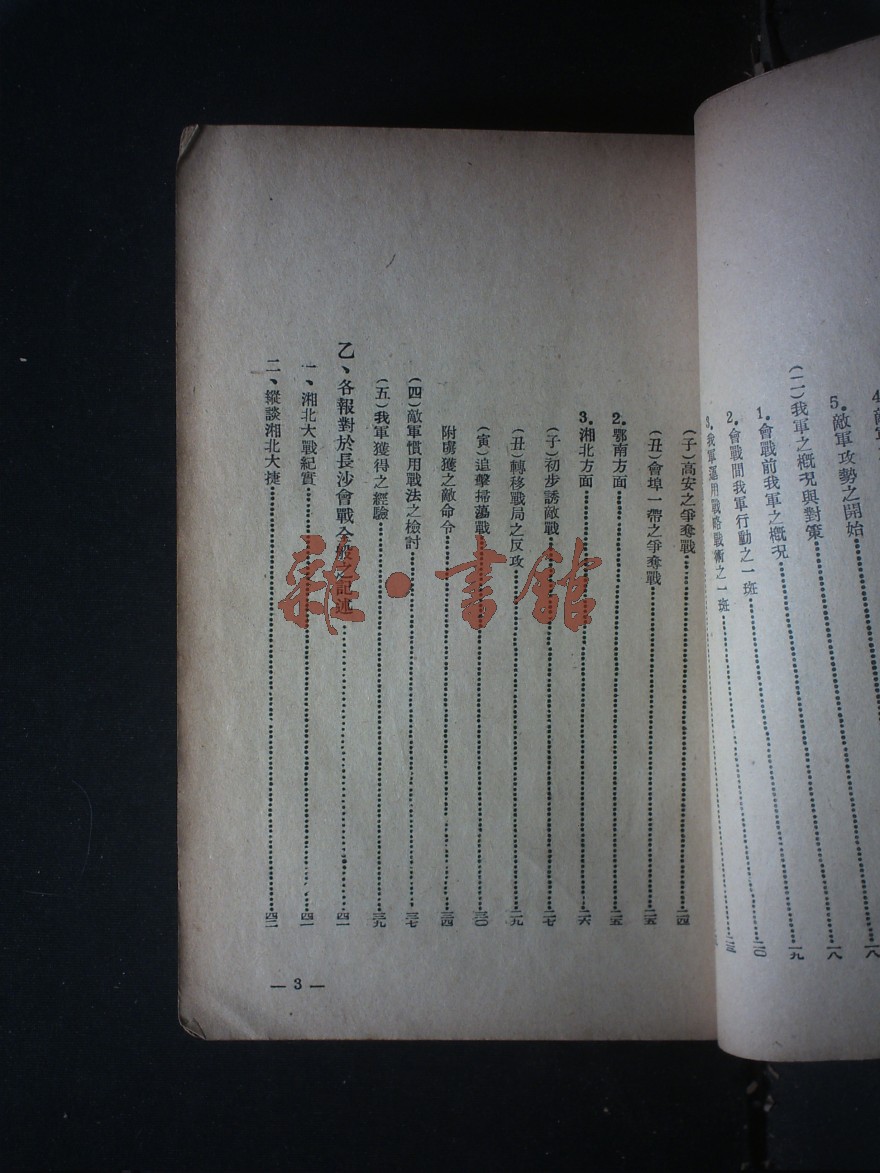 敵軍
5.敵軍攻勢之開始……一八
(二)我軍之概況與對策……一九
1.會戰前我軍之概況……二〇
2.會戰間我軍行動之一斑
3.我軍運用戰略戰術之一斑
(子)高安之爭奪戰……二四
(丑)會埠一帶之爭奪戰……二五
2.鄂南方面……二五
3.湘北方面……二六
(子)初步誘敵戰……二七
(丑)轉移戰局之反攻……二九
(寅)追擊掃蕩戰……三〇
附虜獲之敵命令……三四
(四)敵軍慣用戰法之檢討……三七
(五)我軍獲得之經驗……三九
乙、各報對於長沙會戰全般之記述……四一
一、湘北大戰紀實……四一
二、縱談湘北大捷……四二
— 3 —
雜·書館